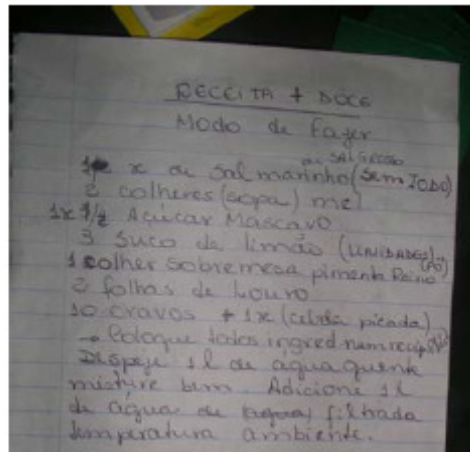 RECEITA + DOCE
Modo de fazer
ou SAL GROSSO
1 x de sal marinho (sem IODO)
2 colheres (sopa) mel
1x 1/2 Açúcar Mascavo
3 suco de limão (UNIDADES)
1 colher sobremesa pimenta Reino (PÓ)
2 folhas de Louro
10 cravos + 1x (cebola picada)
→ Coloque todos ingred num recip
Despeje 1 l de água quente
misture bem. Adicione 1 l
de água de filtrada
temperatura ambiente.